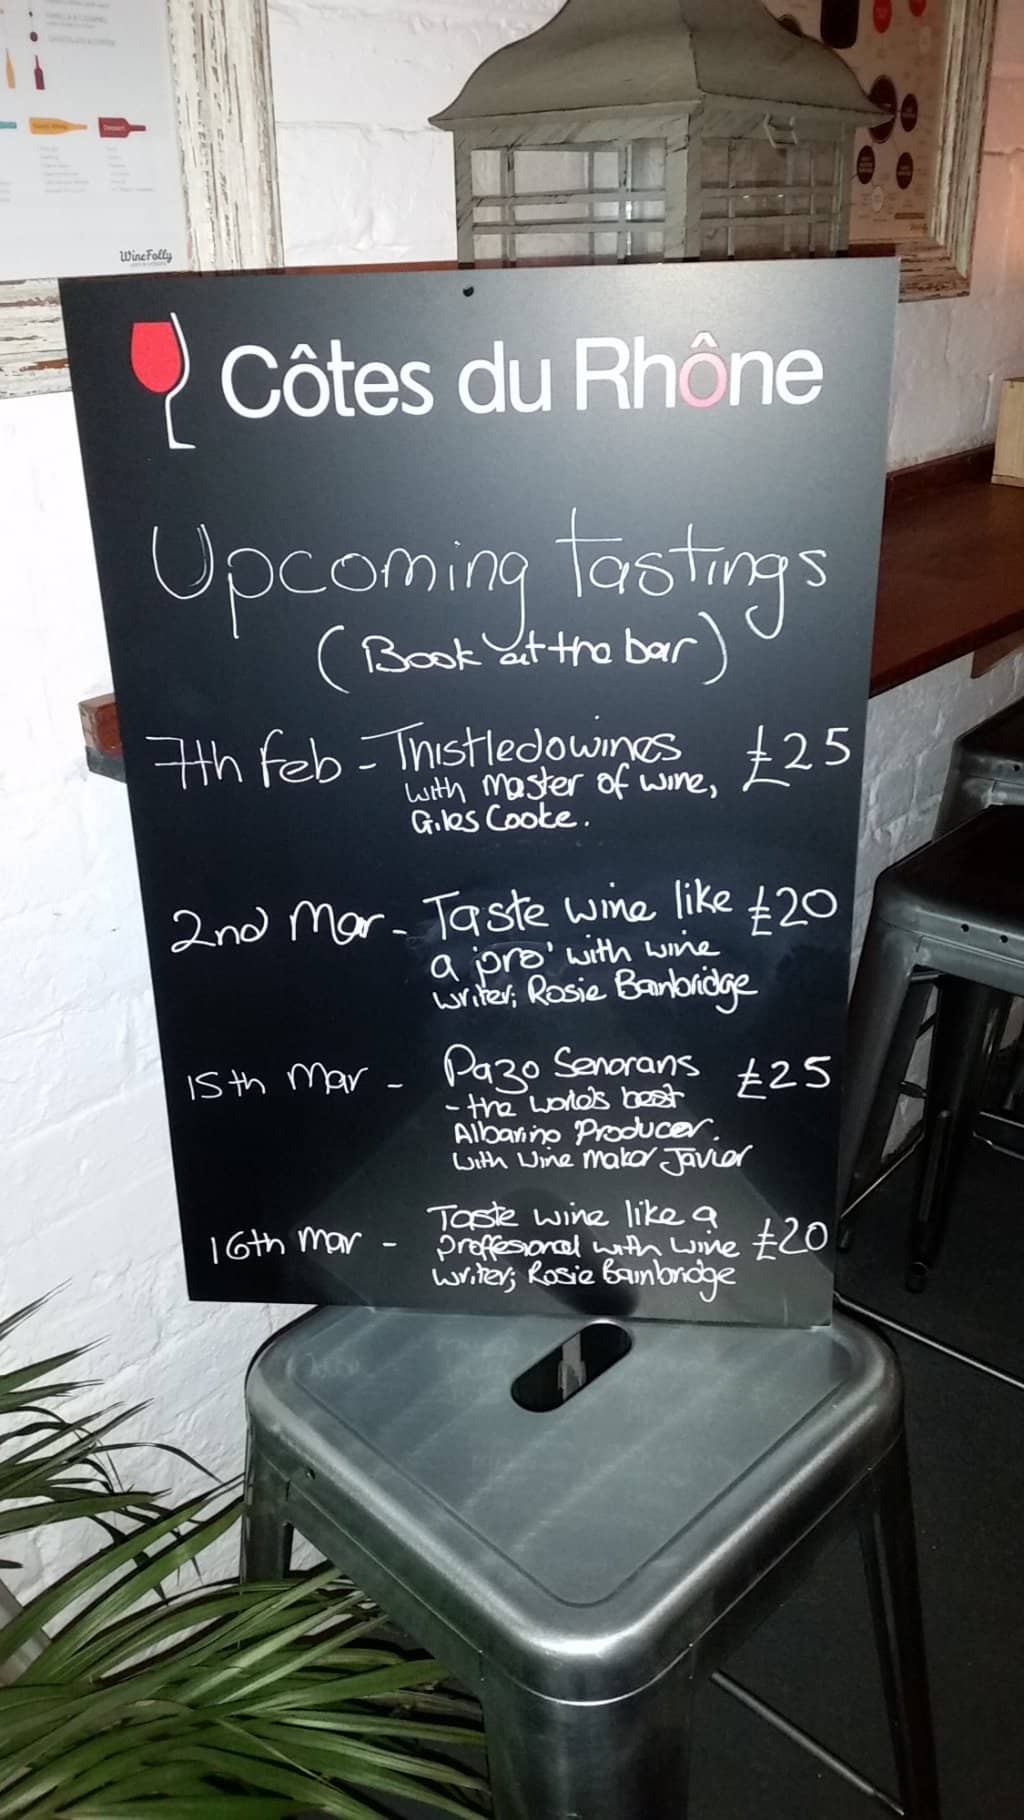 WineFolly
Côtes du Rhône
Upcoming tastings
(Book at the bar)
7th Feb - Thistledowines £25
with Master of wine,
Giles Cooke.
2nd Mar - Taste wine like £20
a 'pro' with wine
writer; Rosie Bainbridge
15th Mar - Pazo Senorans £25
- the world's best
Albarino Producer.
With Wine Maker Javier
16th Mar - Taste wine like a
proffesional with wine £20
writer; Rosie Bainbridge